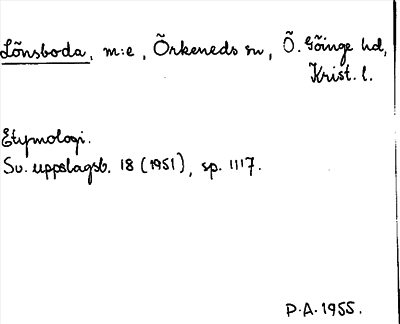 Lönsboda, m:e, Örkeneds sn, Ö. Göinge hd,
Krist. l.
Etymologi.
Sv. uppslagsb. 18 (1951), sp. 1117.
P.A. 1955.